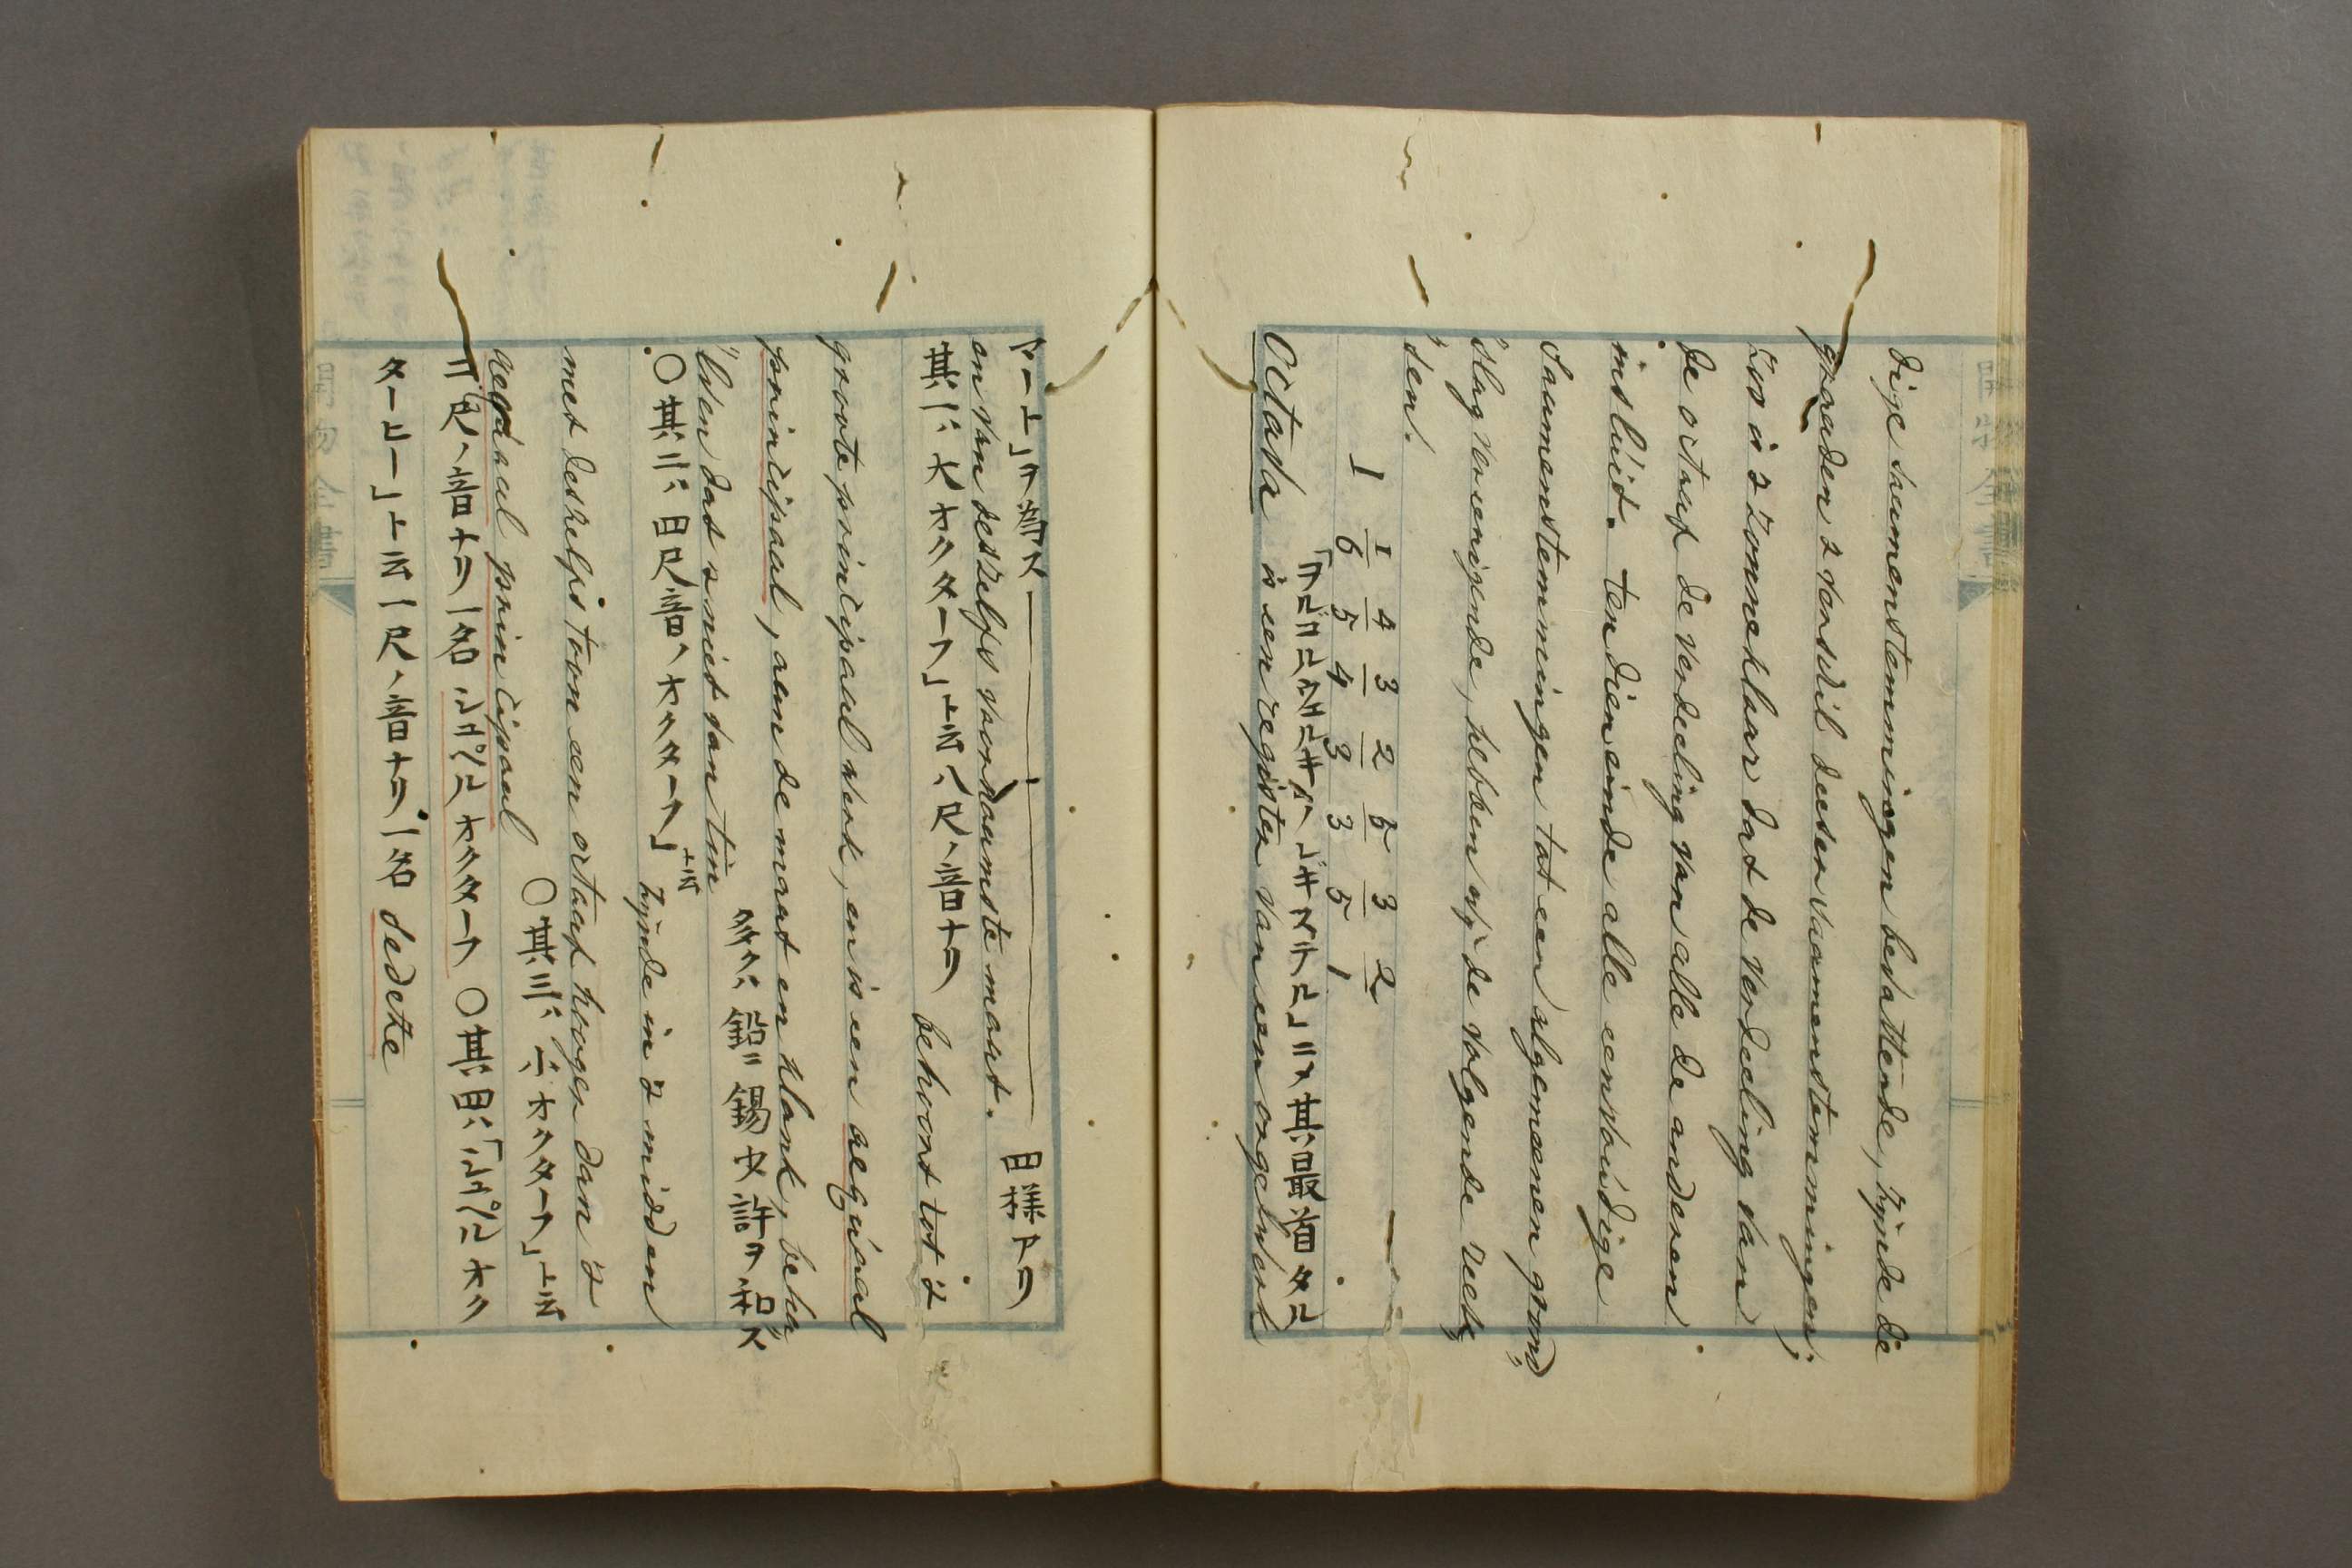 開物全書
dige saamenstemmingen bevattende, zijnde de
graaden z verschil deeser saamenstemmingen;
zoo is z zonneklaar dat de verdeeling van
de octaaf de verdeeling van alle de anderen
insluid. ten dien einde alle eenvoudige
saamenstemmingen tot een algemeenen grond„
„slag vereenigende, hebben wij de volgende reek„
„sen.
1 1/6 4/5 3/4 2/3 5/3 3/5 2/1
「ヲルゴルウェルキ」ハ「レギステル」ニヲ其最首タル
Octava is een register van een orgelwerk
マート」ヲ為ス 四様アリ
en van deszelfs voornaamste maat.
其一ハ大オクターフ」ト云八尺ノ音ナリ behoort tot z
groote principaal werk, en is een aequaal
principaal, aen de maat en klank, behal„
多クハ鉛ニ錫少許ヲ和ス
„lven dat z niet van tin
〇其二ハ四尺音ノオクターフ」ト云 zijnde in z midden
met deszelfs toon een octaaf hooger dan z
aequaal principaal 〇其三ハ小オクターフ」ト云
二尺ノ音ナリ一名シュペルオクターフ 〇其四ハ「シュペルオク
ターヒー」ト云一尺ノ音ナリ一名 sedetze
開物全書